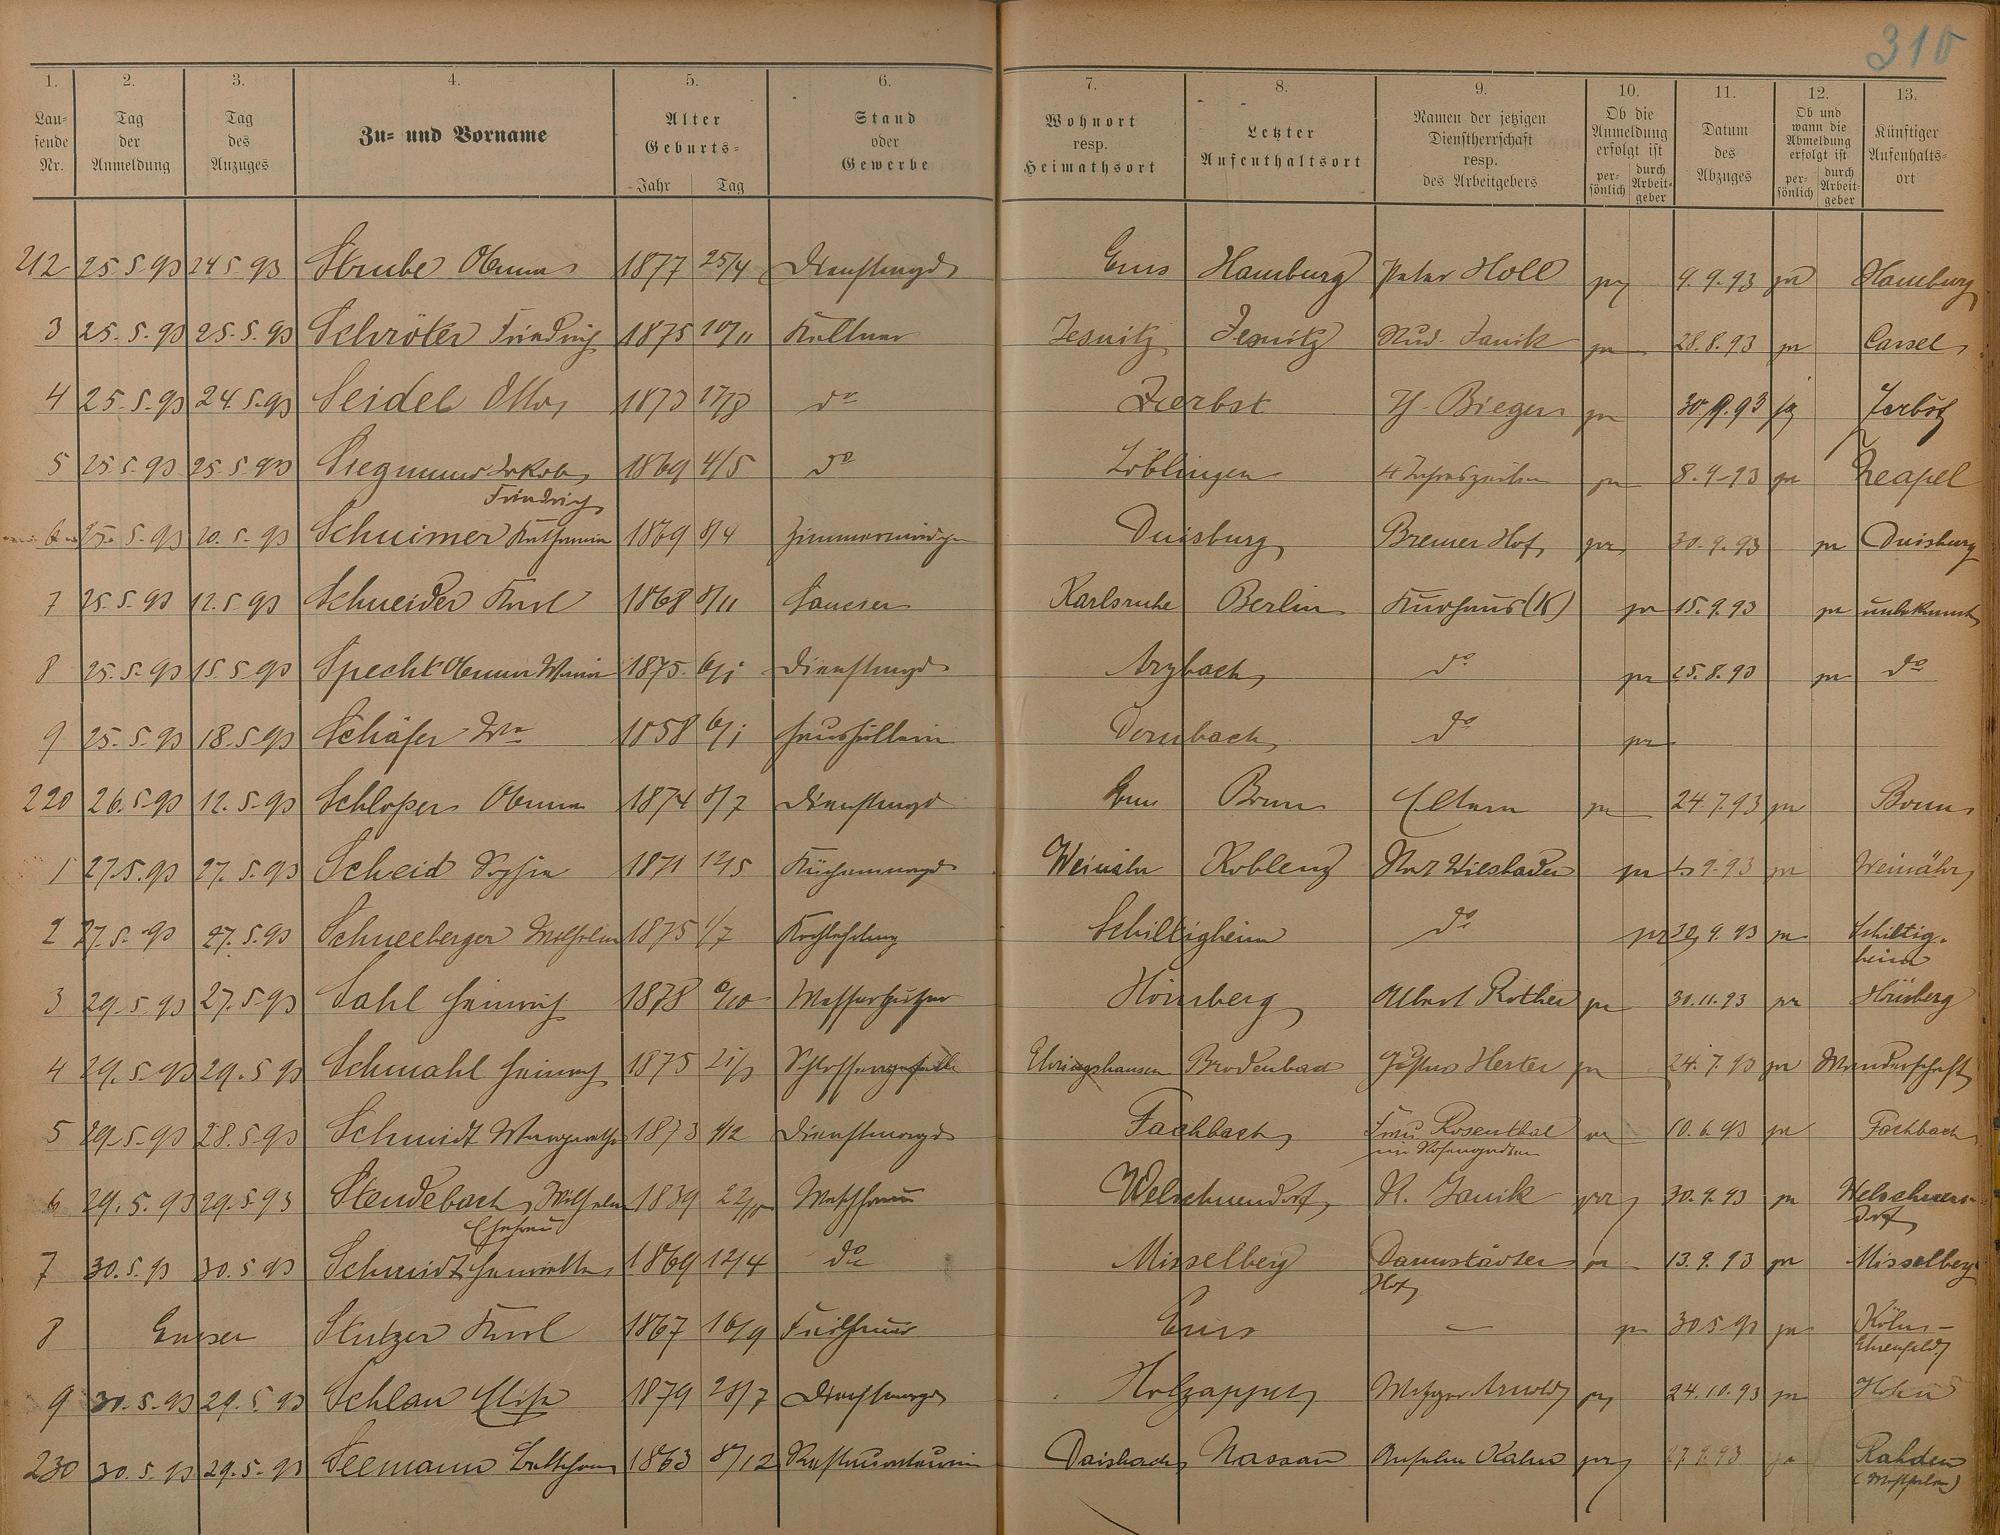 310
1. 2. 3. 4. 5. 6. 7. 8. 9. 10. 11. 12. 13.
Lau-
fende
Nr.
Tag
der
Anmeldung
Tag
des
Anzuges
Zu- und Vorname
Alter
Geburts-
Jahr Tag
Stand
oder
Gewerbe
Wohnort
resp.
Heimathsort
Letzter
Aufenthaltsort
Namen der jetzigen
Dienstherrschaft
resp.
des Arbeitgebers
Ob die
Anmeldung
erfolgt ist
per-
sönlich
durch
Arbeit-
geber
Datum
des
Abzuges
Ob und
wann die
Abmeldung
erfolgt ist
per-
sönlich
durch
Arbeit-
geber
Künftiger
Aufenhalts-
ort
212 25.5.93 24.5.93 Strube Anna 1877 25/4 Dienstmagd Ems Hamburg Peter Holl 9.9.93 Hamburg
3 25.5.93 25.5.93 Schröter Friedrich 1875 10/11 Kellner Jesnitz Jesnitz Rud. Janik 28.8.93 Cassel
4 25.5.93 24.5.93 Seidel Otto 1873 17/8 do Zerbst Biegen 30.9.93 Zerbst
5 25.5.93 25.5.93 Siegmund Jakob 1869 4/5 do Löblingen 4 Jahreszeiten 8.9.93 Neapel
Friedrich
6 25.5.93 20.5.93 Schuimer Katharina 1869 8/4 Zimmermädchen Duisburg Bremer Hof 30.9.93 Duisburg
7 25.5.93 12.5.93 Schneider Karl 1868 8/11 Saucier Karlsruhe Berlin Kurhaus (K) 15.9.93 unbekannt
8 25.5.93 15.5.93 Specht Anna Maria 1875 6/1 Dienstmagd Arzbach do 25.8.93 do
9 25.5.93 18.5.93 Schäfer Wa 1858 6/1 Haushälterin Dornbach do
220 26.5.93 12.5.93 Schloßer Anna 1874 8/7 Dienstmagd Ems Bonn Eltern 24.7.93 Bonn
1 27.5.93 27.5.93 Scheid Sophie 1871 12/5 Küchenmagd Weinähr Koblenz Stadt Wiesbaden 9.93 Weinähr
2 27.5.93 27.5.93 Schneeberger Wilhelm 1875 1/7 Kochlehrling Schiltigheim do 30.9.93 Schiltig-
heim
3 29.5.93 27.5.93 Sahl Heinrich 1878 Hömberg Albert Rother 30.11.93 Hömberg
4 29.5.93 29.5.93 Schmahl Heinrich 1875 21/3 Schlossergeselle Ehringshausen Brodenbach Herter 24.7.93 Wanderschaft
5 29.5.93 28.5.93 Schmidt Margarethe 1873 Dienstmagd Fachbach Frau Rosenthal 10.6.93 Fachbach
im Rosengarten
6 29.5.93 29.5.93 Stendebach Wilhelm 1839 Waschfrau Welschneudorf R. Janik 30.9.93 Welschneu-
dorf
Ehefrau
7 30.5.93 30.5.93 Schmidt Henriette 1869 12/4 do Misselberg Darmstädter 13.9.93 Misselberg
Hof
8 Emser Stutzer Karl 1867 16/9 Ems — 30.5.93 Köln-
Ehrenfeld
9 30.5.93 29.5.93 Schlau Elise 1879 28/7 Dienstmagd Holzappel Metzger Arnold 24.10.93
230 30.5.93 29.5.93 Seemann 1863 8/12 Daisbach Nassau Kahn 17.9.93 Rahden
(Westfalen)